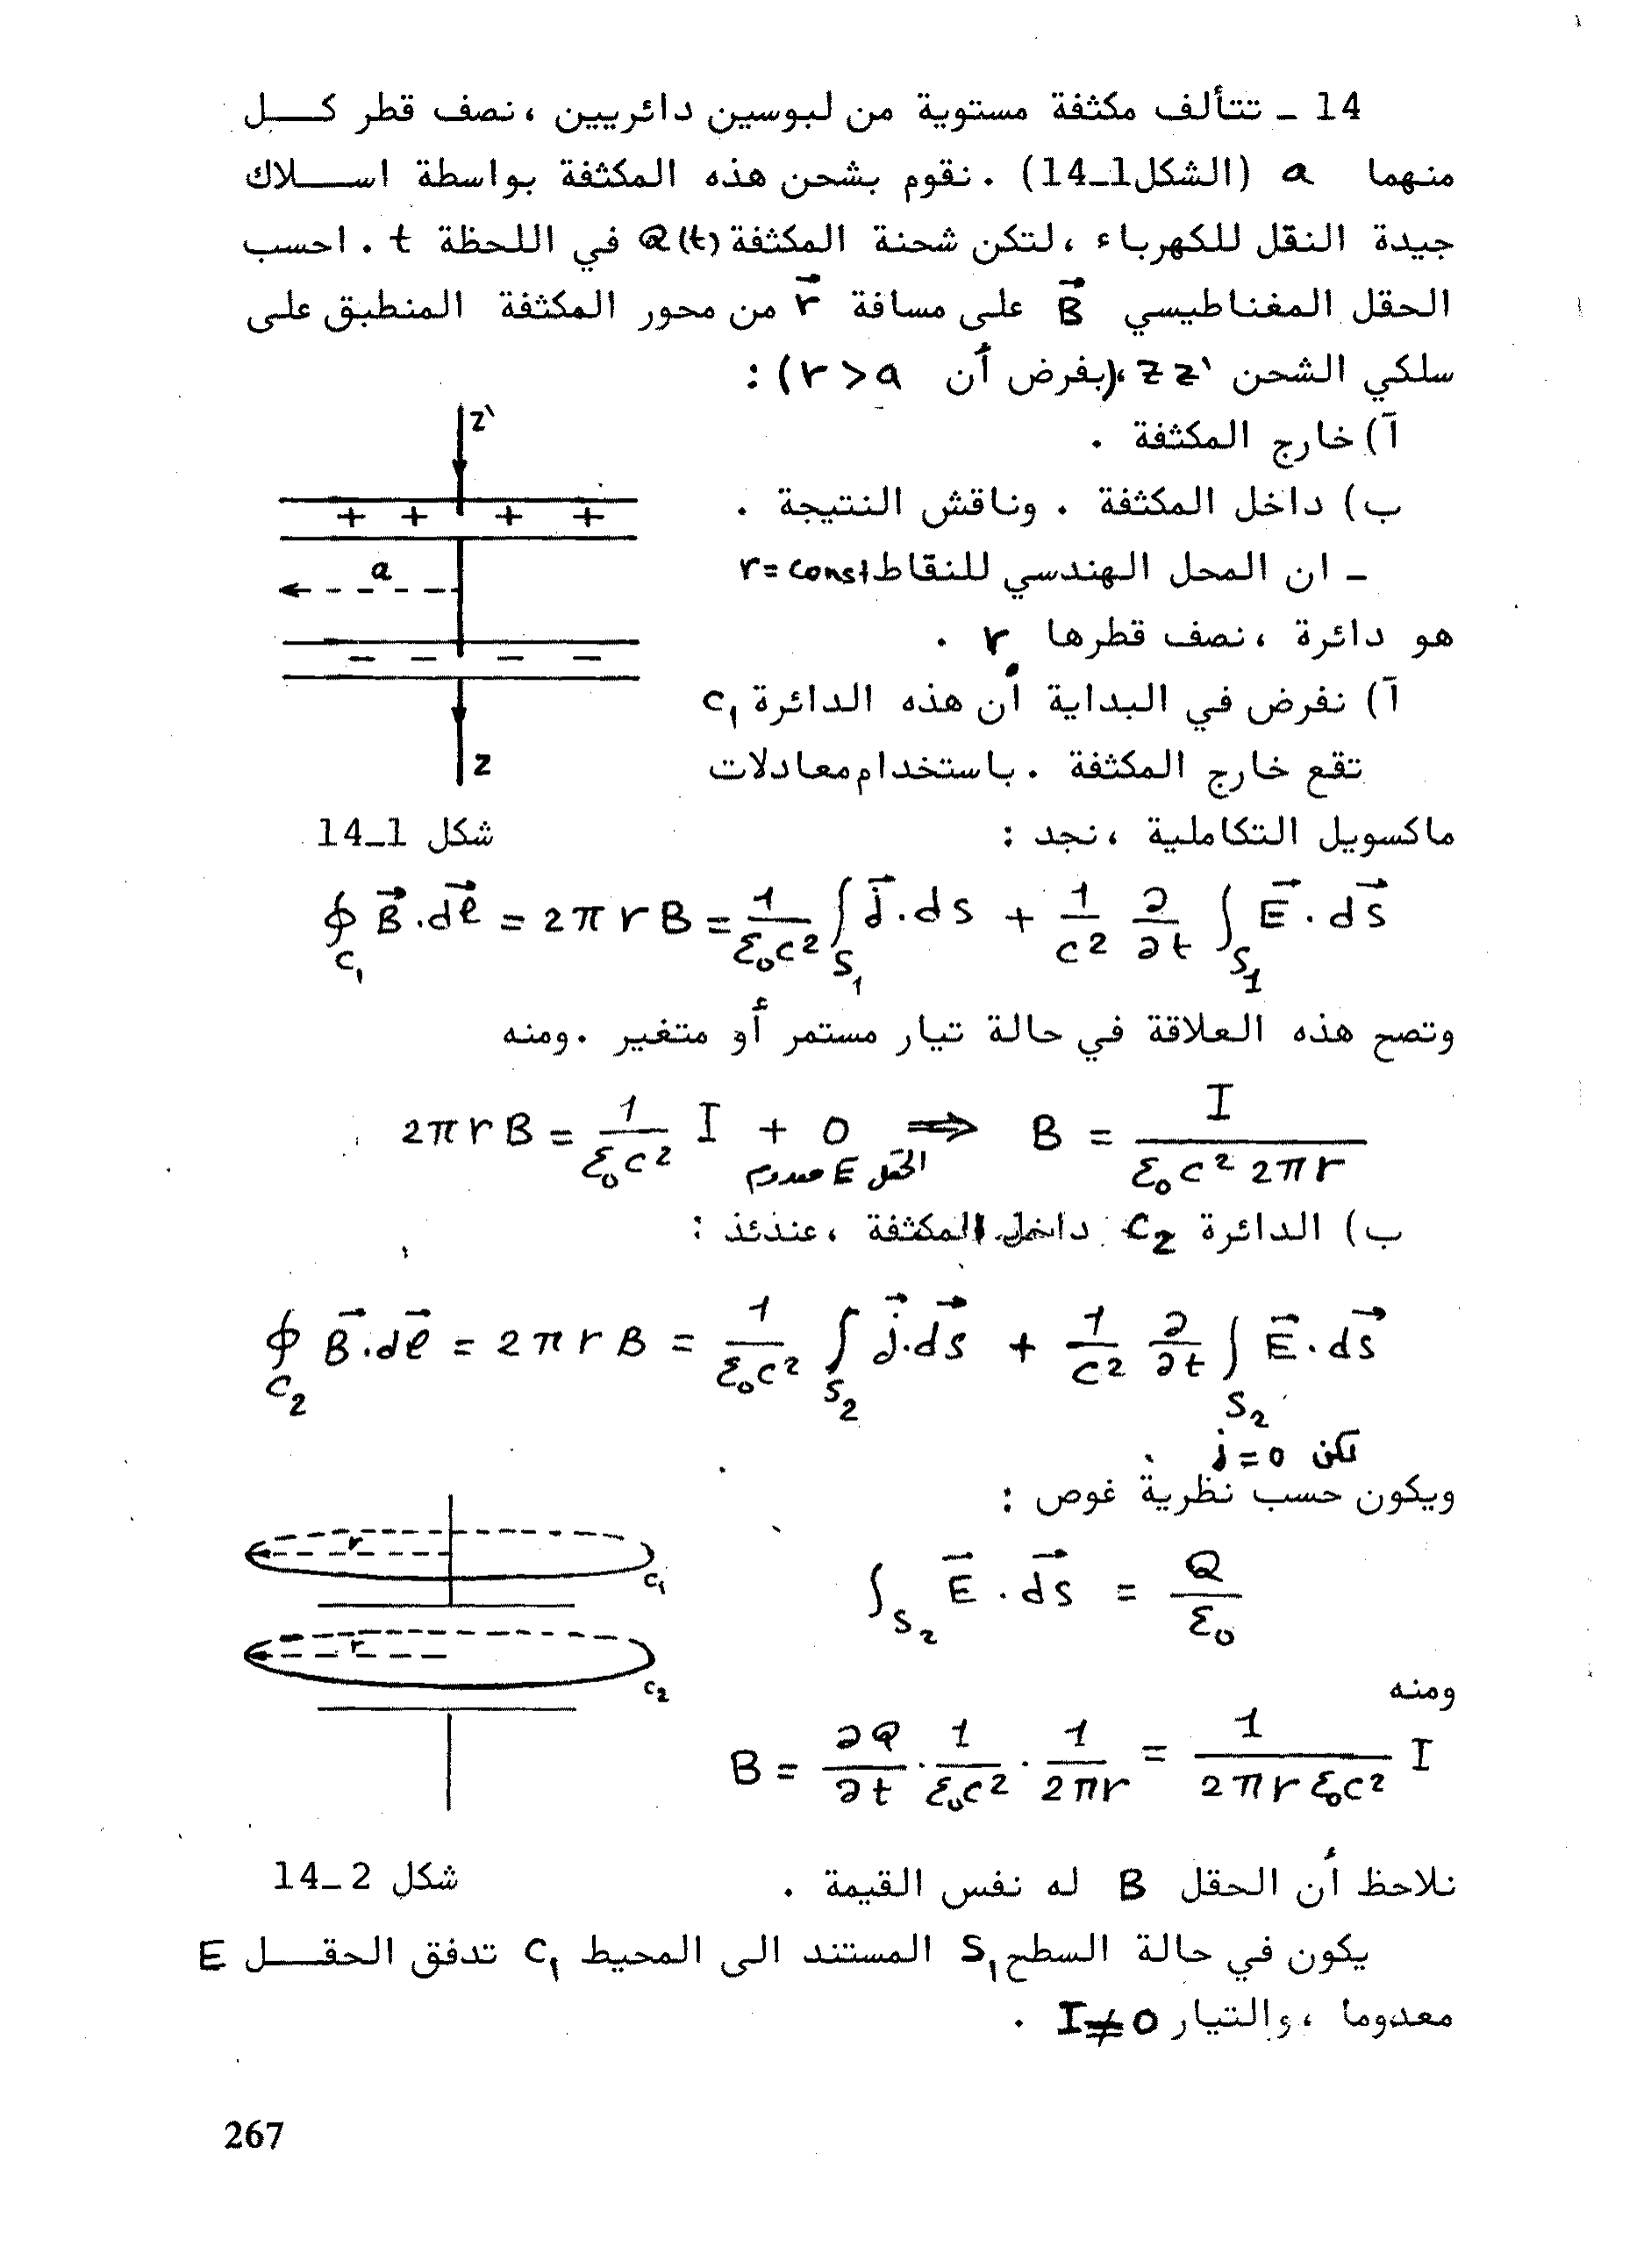 14 ـ تتألف مكثفة مستوية من لبوسين دائريين ، نصف قطر كــل
منهما a (الشكل1ـ14) . نقوم بشحن هذه المكثفة بواسطة اســلاك
جيدة النقل للكهرباء ، لتكن شحنة المكثفة Q(t) في اللحظة t . احسب
الحقل المغناطيسي B⃗ على مسافة r⃗ من محور المكثفة المنطبق على
سلكي الشحن zz' ،(بفرض أن r>a) :
آ) خارج المكثفة .
ب) داخل المكثفة . وناقش النتيجة .
ـ ان المحل الهندسي للنقاط r=const
هو دائرة ، نصف قطرها r .
آ) نفرض في البداية أن هذه الدائرة C₁
تقع خارج المكثفة . باستخدام معادلات
z'
+ + + +
a
− − − −
z
شكل 1ـ14
ماكسويل التكاملية ، نجد :
∮_C₁ B⃗.dℓ⃗ = 2π r B = 1/(ε₀c²) ∫_S₁ j⃗.ds + 1/c² ∂/∂t ∫_S₁ E⃗.ds⃗
وتصح هذه العلاقة في حالة تيار مستمر أو متغير . ومنه
2π r B = 1/(ε₀c²) I + 0 ⟹ B = I/(ε₀c² 2πr)
الحقل E معدوم
ب) الدائرة C₂ داخل المكثفة ، عندئذ :
∮_C₂ B⃗.dℓ⃗ = 2π r B = 1/(ε₀c²) ∫_S₂ j⃗.ds⃗ + 1/c² ∂/∂t ∫_S₂ E⃗.ds⃗
لكن j=0
ويكون حسب نظرية غوص :
∫_S₂ E⃗.ds⃗ = Q/ε₀
ومنه
B = ∂Q/∂t . 1/(ε₀c²) . 1/(2πr) = 1/(2πr ε₀c²) I
r
C₁
r
C₂
شكل 2 ـ14
نلاحظ أن الحقل B له نفس القيمة .
يكون في حالة السطح S₁ المستند الى المحيط C₁ تدفق الحقــل E
معدوما ، والتيار I≠0 .
267